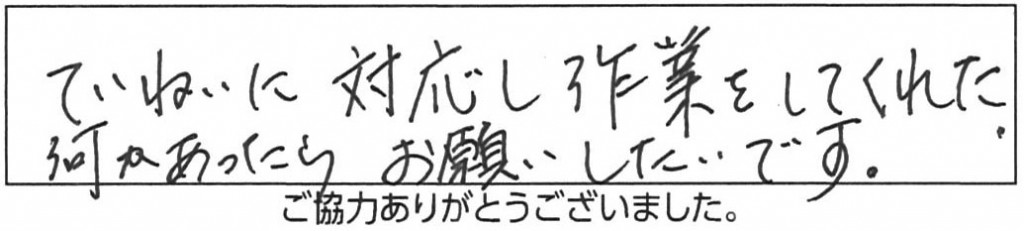 ていねいに対応し作業をしてくれた
何かあったらお願いしたいです。
ご協力ありがとうございました。